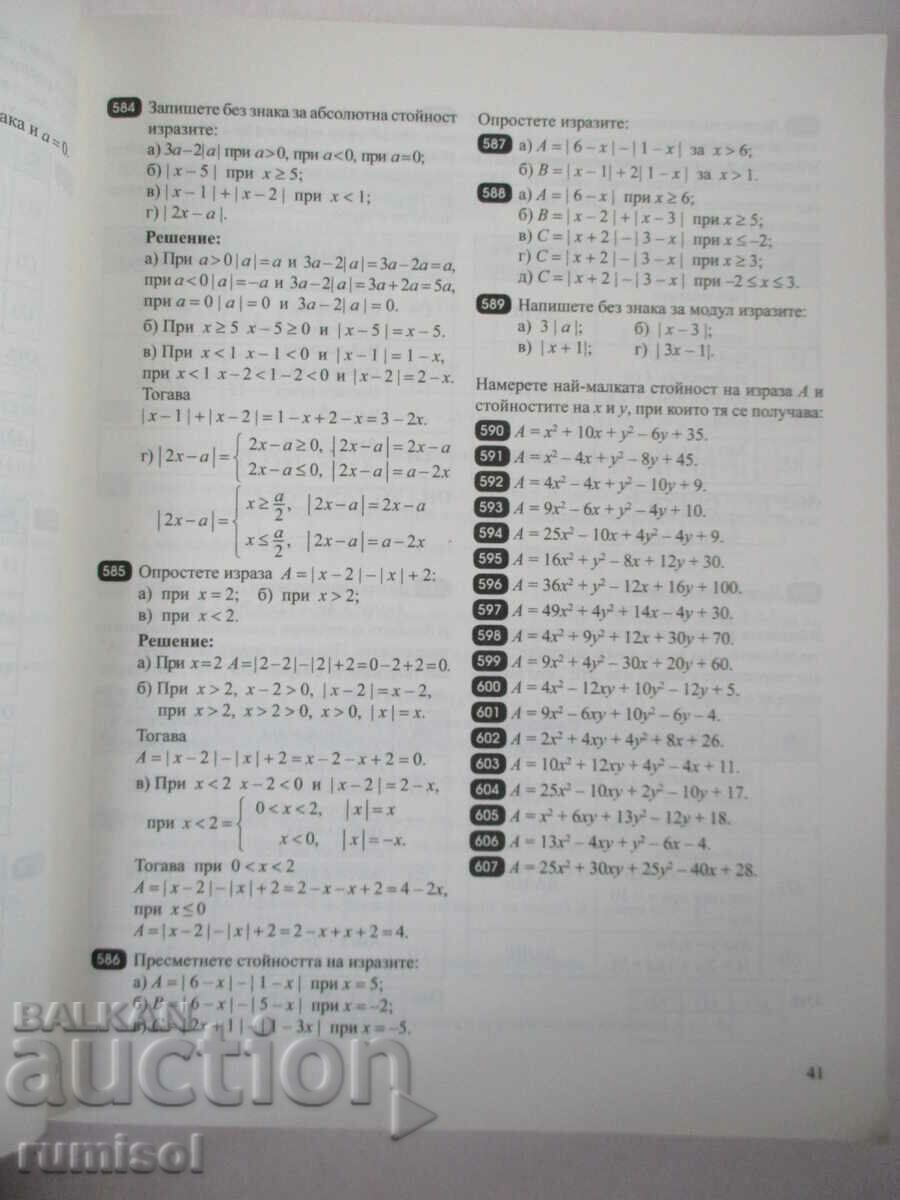 ака и a=0.
584 Запишете без знака за абсолютна стойност
изразите:
а) 3a−2|a| при a>0, при a<0, при a=0;
б) |x−5| при x≥5;
в) |x−1|+|x−2| при x<1;
г) |2x−a|.
Решение:
а) При a>0 |a|=a и 3a−2|a|=3a−2a=a,
при a<0 |a|=−a и 3a−2|a|=3a+2a=5a,
при a=0 |a|=0 и 3a−2|a|=0.
б) При x≥5 x−5≥0 и |x−5|=x−5.
в) При x<1 x−1<0 и |x−1|=1−x,
при x<1 x−2<1−2<0 и |x−2|=2−x.
Тогава
|x−1|+|x−2|=1−x+2−x=3−2x.
г) |2x−a|={ 2x−a≥0, |2x−a|=2x−a
2x−a≤0, |2x−a|=a−2x
|2x−a|={ x≥a/2, |2x−a|=2x−a
x≤a/2, |2x−a|=a−2x
585 Опростете израза A=|x−2|−|x|+2:
а) при x=2; б) при x>2;
в) при x<2.
Решение:
а) При x=2 A=|2−2|−|2|+2=0−2+2=0.
б) При x>2, x−2>0, |x−2|=x−2,
при x>2, x>2>0, x>0, |x|=x.
Тогава
A=|x−2|−|x|+2=x−2−x+2=0.
в) При x<2 x−2<0 и |x−2|=2−x,
при x<2={ 0<x<2, |x|=x
x<0, |x|=−x.
Тогава при 0<x<2
A=|x−2|−|x|+2=2−x−x+2=4−2x,
при x≤0
A=|x−2|−|x|+2=2−x+x+2=4.
586 Пресметнете стойността на изразите:
а) A=|6−x|−|1−x| при x=5;
б) B=|6−x|−|5−x| при x=−2;
в) C=|2x+1|−|1−3x| при x=−5.
Опростете изразите:
587 а) A=|6−x|−|1−x| за x>6;
б) B=|x−1|+2|1−x| за x>1.
588 а) A=|6−x| при x≥6;
б) B=|x−2|+|x−3| при x≥5;
в) C=|x+2|−|3−x| при x≤−2;
г) C=|x+2|−|3−x| при x≥3;
д) C=|x+2|−|3−x| при −2≤x≤3.
589 Напишете без знака за модул изразите:
а) 3|a|; б) |x−3|;
в) |x+1|; г) |3x−1|.
Намерете най-малката стойност на израза A и
стойностите на x и y, при които тя се получава:
590 A=x²+10x+y²−6y+35.
591 A=x²−4x+y²−8y+45.
592 A=4x²−4x+y²−10y+9.
593 A=9x²−6x+y²−4y+10.
594 A=25x²−10x+4y²−4y+9.
595 A=16x²+y²−8x+12y+30.
596 A=36x²+y²−12x+16y+100.
597 A=49x²+4y²+14x−4y+30.
598 A=4x²+9y²+12x+30y+70.
599 A=9x²+4y²−30x+20y+60.
600 A=4x²−12xy+10y²−12y+5.
601 A=9x²−6xy+10y²−6y−4.
602 A=2x²+4xy+4y²+8x+26.
603 A=10x²+12xy+4y²−4x+11.
604 A=25x²−10xy+2y²−10y+17.
605 A=x²+6xy+13y²−12y+18.
606 A=13x²−4xy+y²−6x−4.
607 A=25x²+30xy+25y²−40x+28.
41
BALKAN
auction
rumisol